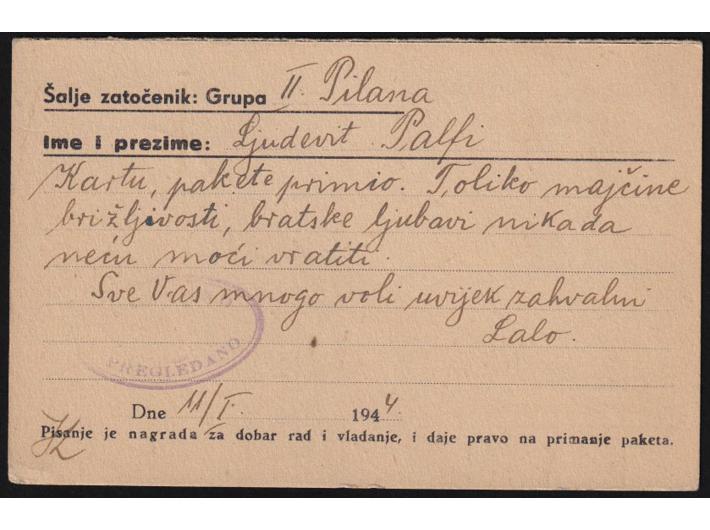 Šalje zatočenik: Grupa II. Pilana
Ime i prezime: Ljudevit Palfi
Kartu, pakete primio. Toliko majčine
brižljivosti, bratske ljubavi nikada
neću moći vratiti.
Sve Vas mnogo voli uvijek zahvalni
Lalo.
PREGLEDANO
Dne 11/I. 1944.
Pisanje je nagrada za dobar rad i vladanje, i daje pravo na primanje paketa.